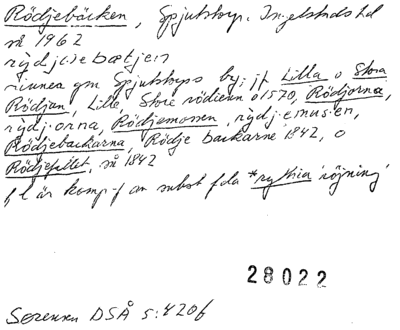 Rödjebäcken, Spjutstorp. Ingelstads hd
så 1962
rinner gm Spjutstorps by; jf Lilla o Stora
Rödjan, Lille, Store rödienn o1570, Rödjorna,
rödj·orna, Rödjemosen, rydj·emusen,
Rödjebackarna, Rödje backarne 1842, o
Rödjefallet, så 1842
fl är komp-f av subst fda *rythia 'röjning'
28022
Sørensen DSÅ 5:420f